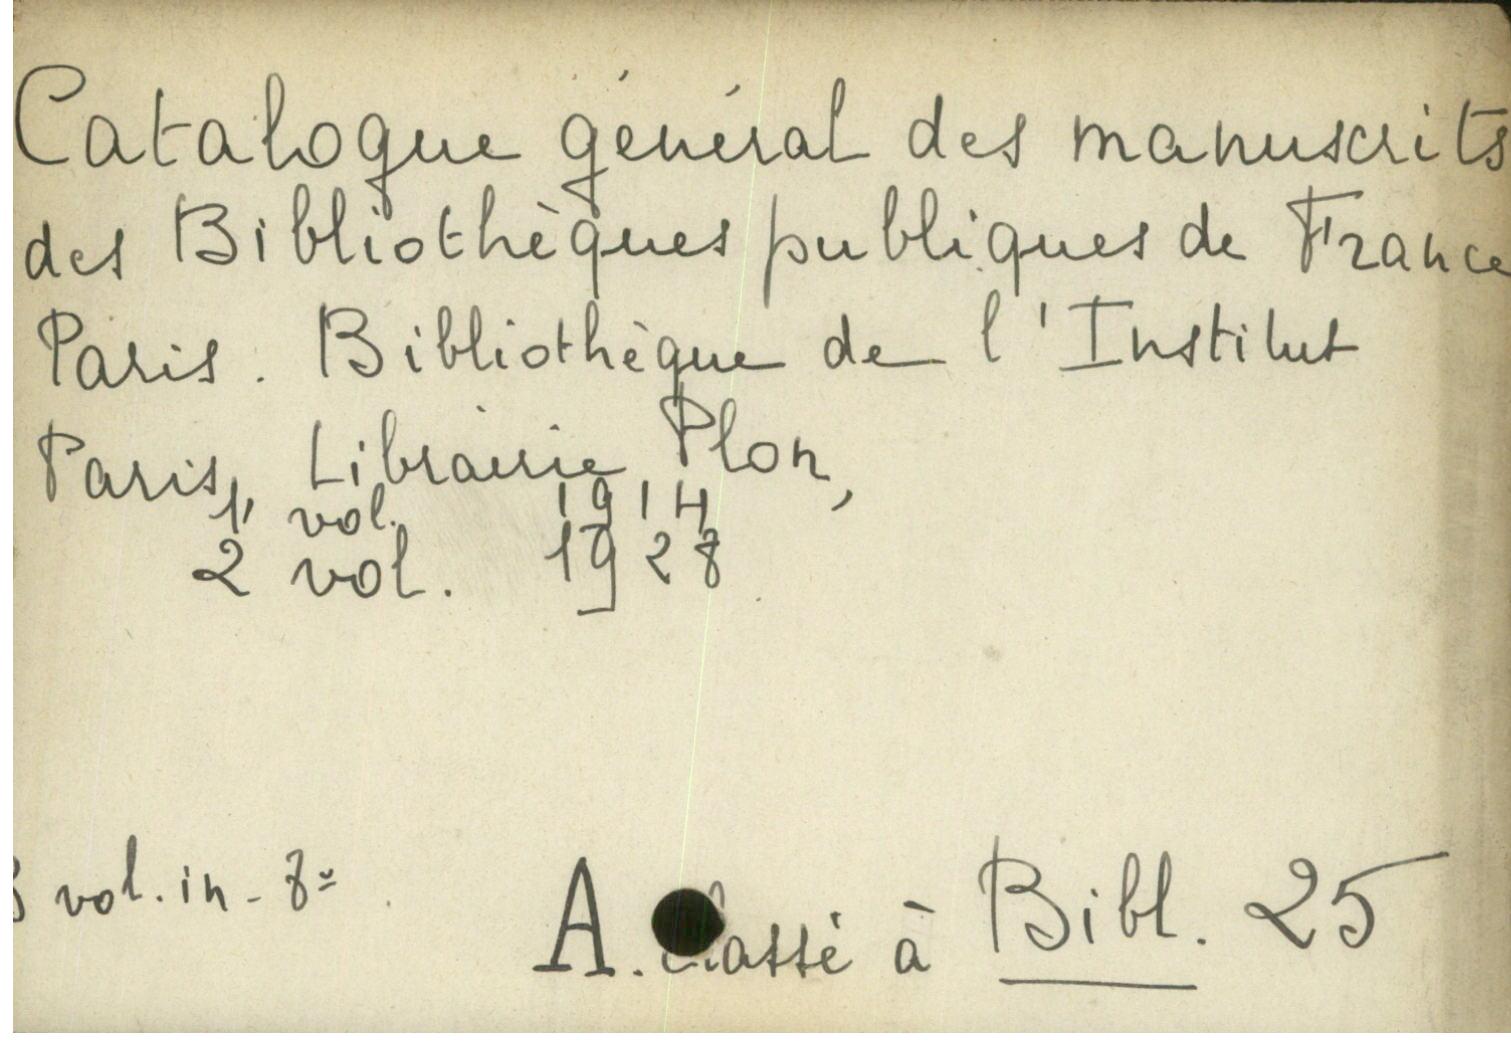 Catalogue général des manuscrits
des Bibliothèques publiques de France
Paris. Bibliothèque de l'Institut
Paris, Librairie Plon,
1 vol. 1914
2 vol. 1928
vol. in-8º
A. classé à Bibl. 25